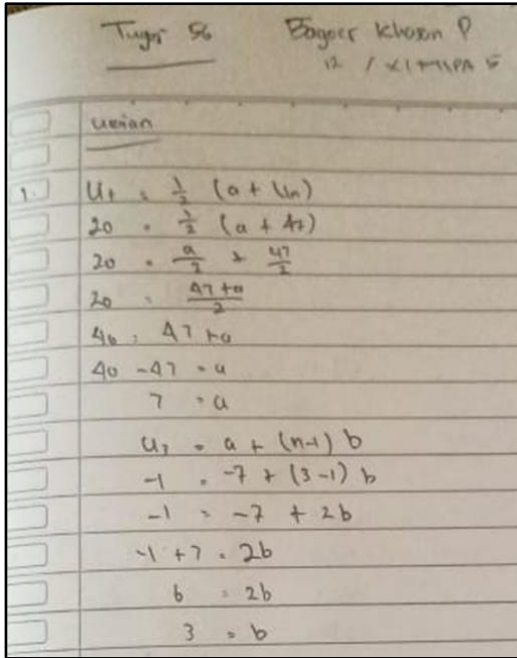 Tugas 56
12 / XI MIPA 5
uraian
1. Ut = 1/2 (a + Un)
20 = 1/2 (a + 47)
20 = a/2 + 47/2
20 = 47+a/2
40 = 47+a
40 - 47 = a
7 = a
U3 = a + (n-1) b
-1 = -7 + (3-1) b
-1 = -7 + 2b
-1 + 7 = 2b
6 = 2b
3 = b